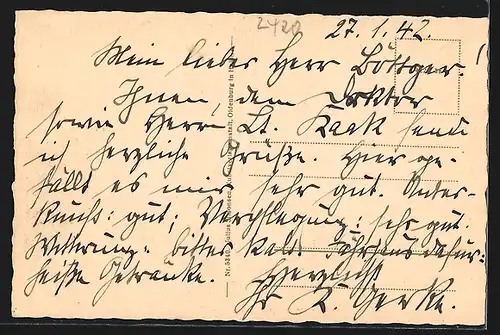 2420
27.1.42.
Mein lieber Herr Böttger!
Ihnen, dem Doktor
sowie Herrn Lt. Kaak sende
ich herzliche Grüße. Hier ge-
fällt es mir sehr gut. Unter-
kunft: gut; Verpflegung: sehr gut.
Witterung: bitter kalt. dafür:
heiße Getränke. Herzlichst
Ihr K. Gerke.